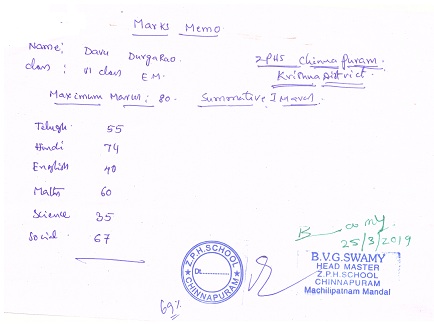 Marks Memo.
Name: Davu Durgarao. ZPHS Chinnapuram.
class: VI class E.M. Krishna District.
Maximum Marks: 80. Summative I Marks.
Telugu 55
Hindi 74
English 40
Maths 60
Science 35
Social 67
25/3/2019
Z.P.H.SCHOOL
Dt.
CHINNAPURAM
B.V.G.SWAMY
HEAD MASTER
Z.P.H.SCHOOL
CHINNAPURAM
Machilipatnam Mandal
69%